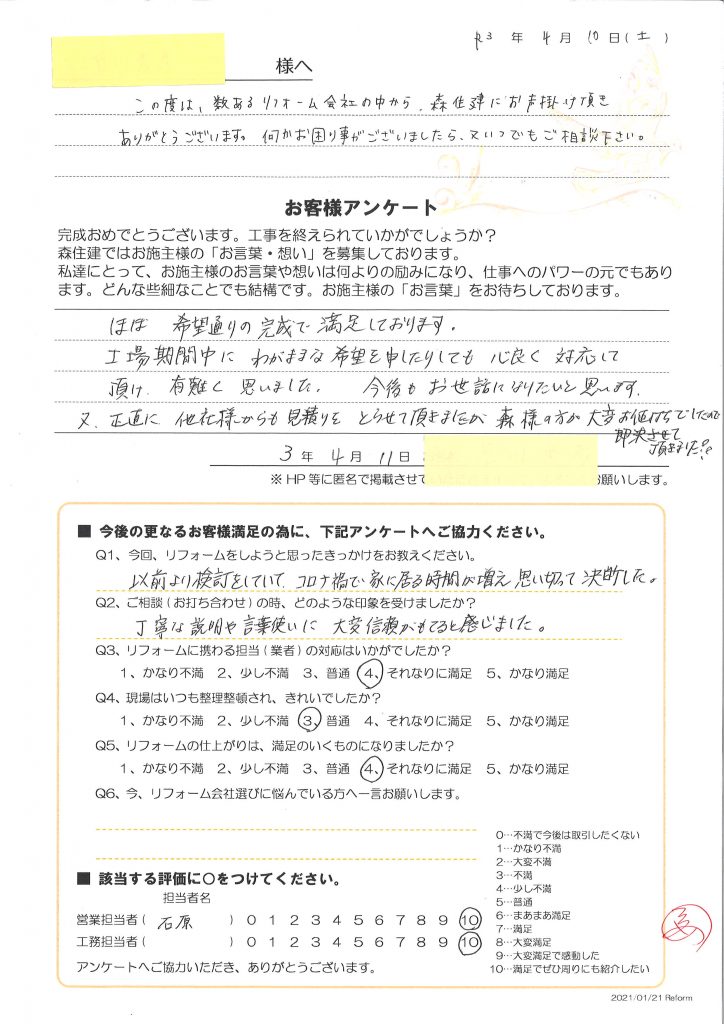 R3 年 4 月 10 日(土)
様へ
この度は、数あるリフォーム会社の中から、森住建にお声掛け頂き
ありがとうございます。何かお困り事がございましたら、又いつでもご相談下さい。
お客様アンケート
完成おめでとうございます。工事を終えられていかがでしょうか?
森住建ではお施主様の「お言葉・想い」を募集しております。
私達にとって、お施主様のお言葉や想いは何よりの励みになり、仕事へのパワーの元でもあり
ます。どんな些細なことでも結構です。お施主様の「お言葉」をお待ちしております。
ほぼ 希望通りの完成で満足しております。
工場期間中に わがままな希望を申したりしても 心良く 対応して
頂け、有難く 思いました。 今後も お世話になりたいと思います。
又、正直に 他社様からも見積りを とらせて頂きましたが 森様の方が 大変お値打ちでしたので
即決させて
頂きました。
3 年 4 月 11 日
※HP等に匿名で掲載させて お願いします。
■ 今後の更なるお客様満足の為に、下記アンケートへご協力ください。
Q1、今回、リフォームをしようと思ったきっかけをお教えください。
以前より検討をしていて、コロナ禍で家に居る時間が増え 思い切って 決断した。
Q2、ご相談(お打ち合わせ)の時、どのような印象を受けましたか?
丁寧な説明や言葉使いに 大変信頼がもてると感じました。
Q3、リフォームに携わる担当(業者)の対応はいかがでしたか?
1、かなり不満 2、少し不満 3、普通 4、それなりに満足 5、かなり満足
Q4、現場はいつも整理整頓され、きれいでしたか?
1、かなり不満 2、少し不満 3、普通 4、それなりに満足 5、かなり満足
Q5、リフォームの仕上がりは、満足のいくものになりましたか?
1、かなり不満 2、少し不満 3、普通 4、それなりに満足 5、かなり満足
Q6、今、リフォーム会社選びに悩んでいる方へ一言お願いします。
■ 該当する評価に○をつけてください。
担当者名
営業担当者( 石原 ) 0 1 2 3 4 5 6 7 8 9 10
工務担当者( ) 0 1 2 3 4 5 6 7 8 9 10
アンケートへご協力いただき、ありがとうございます。
0…不満で今後は取引したくない
1…かなり不満
2…大変不満
3…不満
4…少し不満
5…普通
6…まあまあ満足
7…満足
8…大変満足
9…大変満足で感動した
10…満足でぜひ周りにも紹介したい
2021/01/21 Reform